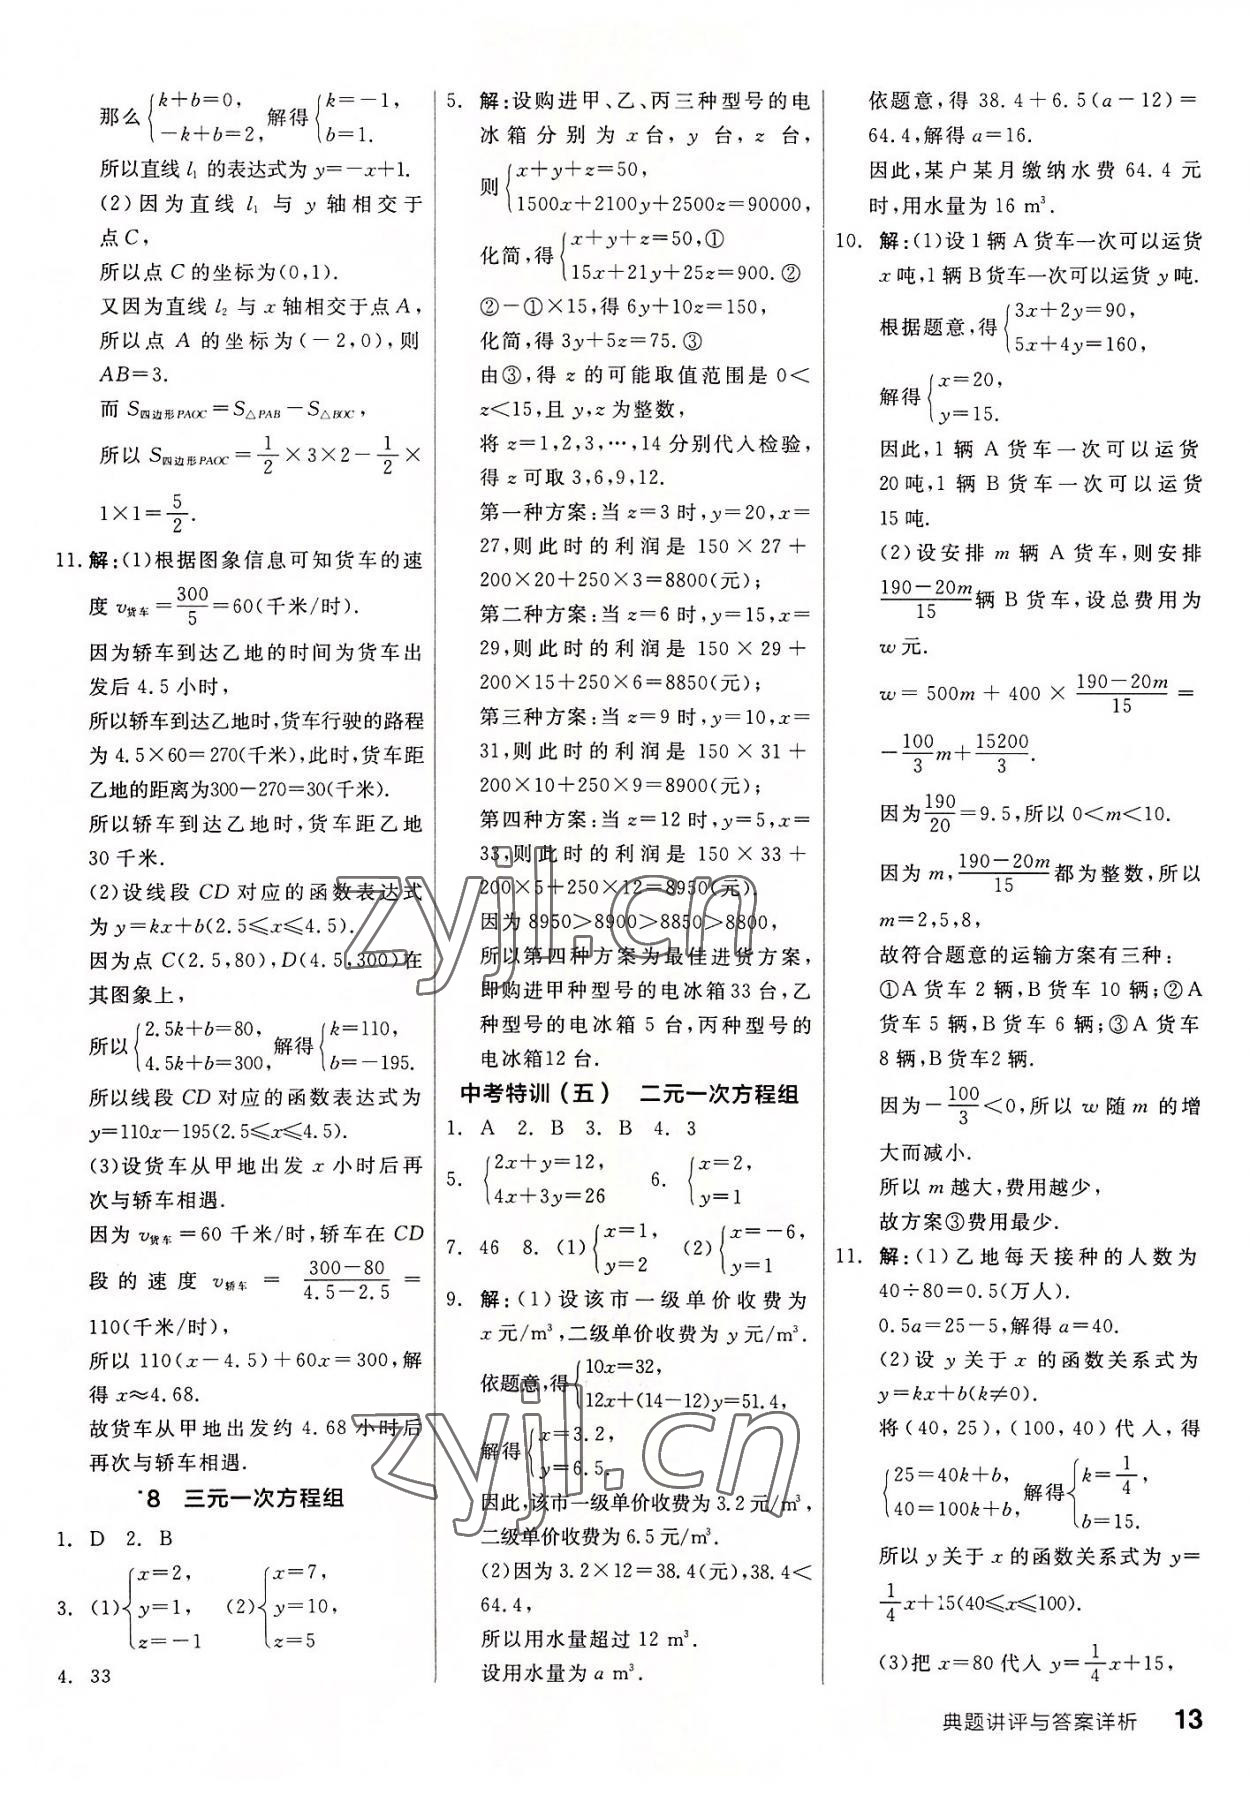 那么{k+b=0, -k+b=2, 解得{k=-1, b=1.
所以直线 l₁ 的表达式为 y=-x+1.
(2)因为直线 l₁ 与 y 轴相交于
点C,
所以点 C 的坐标为(0,1).
又因为直线 l₂ 与 x 轴相交于点 A,
所以点 A 的坐标为(-2,0),则
AB=3.
而 S四边形PAOC=S△PAB-S△BOC,
所以 S四边形PAOC=1/2×3×2-1/2×
1×1=5/2.
11. 解:(1)根据图象信息可知货车的速
度 v货车=300/5=60(千米/时).
因为轿车到达乙地的时间为货车出
发后 4.5 小时,
所以轿车到达乙地时,货车行驶的路程
为 4.5×60=270(千米),此时,货车距
乙地的距离为300-270=30(千米).
所以轿车到达乙地时,货车距乙地
30 千米.
(2)设线段 CD 对应的函数表达式
为 y=kx+b(2.5≤x≤4.5).
因为点 C(2.5,80),D(4.5,300)在
其图象上,
所以{2.5k+b=80, 4.5k+b=300, 解得{k=110, b=-195.
所以线段 CD 对应的函数表达式为
y=110x-195(2.5≤x≤4.5).
(3)设货车从甲地出发 x 小时后再
次与轿车相遇.
因为 v货车=60 千米/时,轿车在 CD
段的速度 v轿车 = (300-80)/(4.5-2.5) =
110(千米/时),
所以 110(x-4.5)+60x=300,解
得 x≈4.68.
故货车从甲地出发约 4.68 小时后
再次与轿车相遇.
*8 三元一次方程组
1. D 2. B
3. (1){x=2, y=1, z=-1 (2){x=7, y=10, z=5
4. 33
5. 解:设购进甲、乙、丙三种型号的电
冰箱分别为 x台, y 台, z 台,
则{x+y+z=50, 1500x+2100y+2500z=90000,
化简,得{x+y+z=50,① 15x+21y+25z=900.②
②-①×15,得 6y+10z=150,
化简,得 3y+5z=75.③
由③,得 z 的可能取值范围是 0<
z<15,且 y,z 为整数,
将 z=1,2,3,…,14 分别代入检验,
得 z 可取 3,6,9,12.
第一种方案:当 z=3 时,y=20,x=
27,则此时的利润是 150×27+
200×20+250×3=8800(元);
第二种方案:当 z=6 时,y=15,x=
29,则此时的利润是 150×29+
200×15+250×6=8850(元);
第三种方案:当 z=9 时,y=10,x=
31,则此时的利润是 150×31+
200×10+250×9=8900(元);
第四种方案:当 z=12 时,y=5,x=
33,则此时的利润是 150×33+
200×5+250×12=8950(元).
因为 8950>8900>8850>8800,
所以第四种方案为最佳进货方案,
即购进甲种型号的电冰箱33 台,乙
种型号的电冰箱 5 台,丙种型号的
电冰箱12 台.
中考特训(五) 二元一次方程组
1. A 2. B 3. B 4. 3
5. {2x+y=12, 4x+3y=26 6. {x=2, y=1
7. 46 8. (1){x=1, y=2 (2){x=-6, y=1
9. 解:(1)设该市一级单价收费为
x 元/m³,二级单价收费为 y 元/m³.
依题意,得{10x=32, 12x+(14-12)y=51.4,
解得{x=3.2, y=6.5.
因此,该市一级单价收费为 3.2 元/m³,
二级单价收费为 6.5 元/m³.
(2)因为 3.2×12=38.4(元),38.4<
64.4,
所以用水量超过 12 m³.
设用水量为 a m³.
依题意,得 38.4+6.5(a-12)=
64.4,解得 a=16.
因此,某户某月缴纳水费 64.4 元
时,用水量为 16 m³.
10. 解:(1)设 1 辆 A 货车一次可以运货
x 吨,1 辆 B 货车一次可以运货 y 吨.
根据题意,得{3x+2y=90, 5x+4y=160,
解得{x=20, y=15.
因此,1 辆 A 货车一次可以运货
20 吨,1 辆 B 货车一次可以运货
15 吨.
(2)设安排 m 辆 A 货车,则安排
(190-20m)/15 辆 B 货车,设总费用为
w 元.
w=500m+400×(190-20m)/15=
-100/3m+15200/3.
因为190/20=9.5,所以 0<m<10.
因为 m,(190-20m)/15 都为整数,所以
m=2,5,8,
故符合题意的运输方案有三种:
①A 货车 2 辆,B 货车 10 辆;②A
货车 5 辆,B 货车 6 辆;③A 货车
8 辆,B 货车2 辆.
因为-100/3<0,所以 w 随 m 的增
大而减小.
所以 m 越大,费用越少,
故方案③费用最少.
11. 解:(1)乙地每天接种的人数为
40÷80=0.5(万人).
0.5a=25-5,解得 a=40.
(2)设 y 关于 x 的函数关系式为
y=kx+b(k≠0).
将(40,25),(100,40)代人,得
{25=40k+b, 40=100k+b, 解得{k=1/4, b=15.
所以 y 关于 x 的函数关系式为 y=
1/4x+15(40≤x≤100).
(3)把 x=80 代人 y=1/4x+15,
典题讲评与答案详析 13
zyjl.cn
zyjl.cn